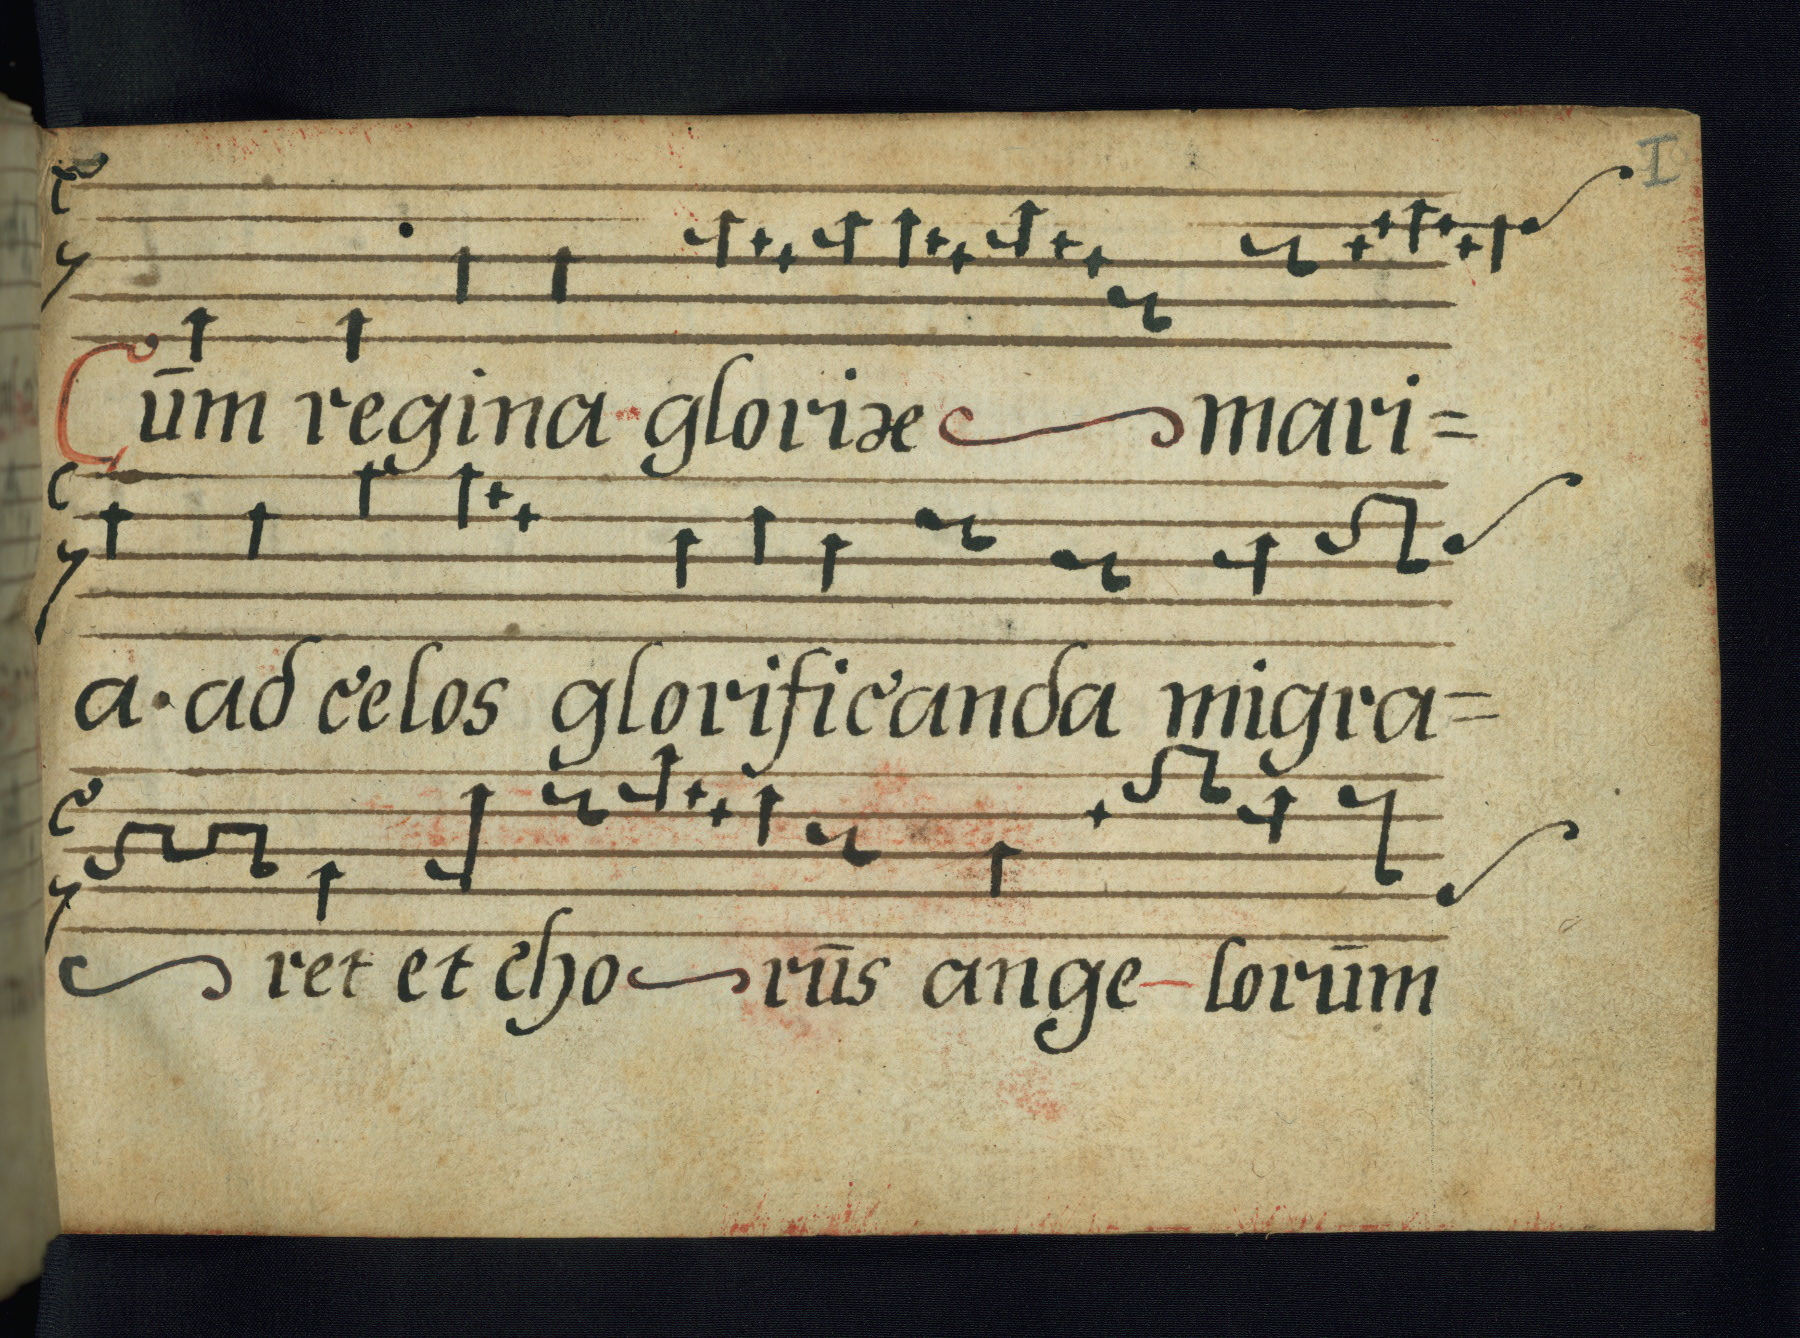 I
Cūm regina gloriæ mari=
a · ad celos glorificanda migra=
ret et cho rūs ange - lorūm